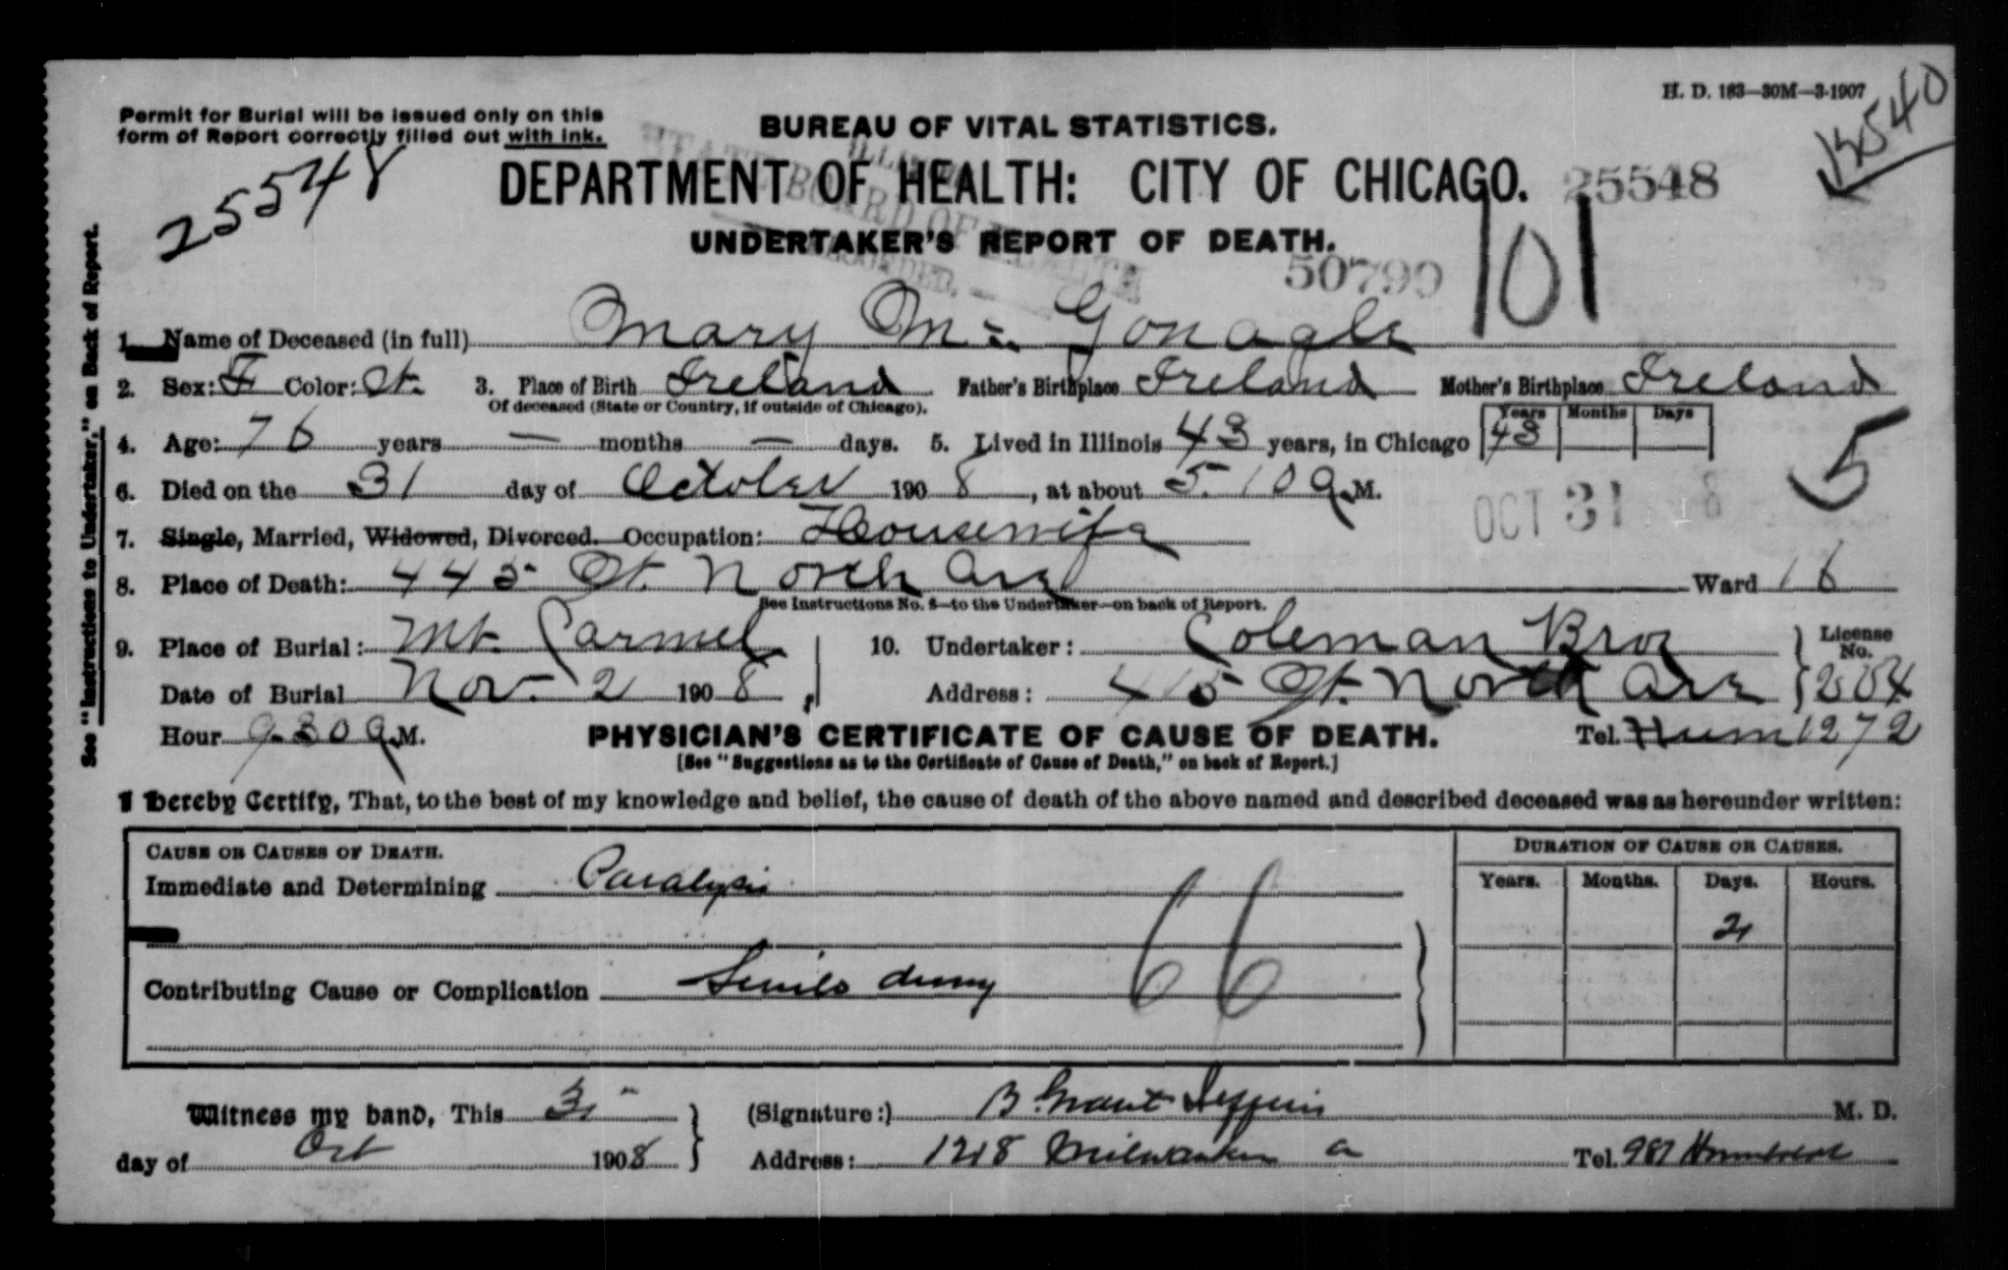 H. D. 183—30M—3-1907
Permit for Burial will be issued only on this
form of Report correctly filled out with ink.
BUREAU OF VITAL STATISTICS.
25548
DEPARTMENT OF HEALTH: CITY OF CHICAGO. 25548
UNDERTAKER'S REPORT OF DEATH.
50799 101
See "Instructions to Undertaker," on Back of Report.
1. Name of Deceased (in full) Mary Mc Gonagle
2. Sex: F Color: W. 3. Place of Birth Ireland Father's Birthplace Ireland Mother's Birthplace Ireland
Of deceased (State or Country, if outside of Chicago).
Years Months Days
4. Age: 76 years — months — days. 5. Lived in Illinois 43 years, in Chicago 43
6. Died on the 31 day of October 1908, at about 5.10 a.M.
OCT 31 8 5
7. Single, Married, Widowed, Divorced. Occupation: Housewife
8. Place of Death: 445 W. North Ave Ward 16
See Instructions No. 8—to the Undertaker—on back of Report.
9. Place of Burial: Mt. Carmel 10. Undertaker: Coleman Bros License No.
Date of Burial Nov. 2 1908, Address: 415 W. North Ave 204
Hour 9.30 a.M. PHYSICIAN'S CERTIFICATE OF CAUSE OF DEATH. Tel. Hum 1272
[See "Suggestions as to the Certificate of Cause of Death," on back of Report.]
I hereby Certify, That, to the best of my knowledge and belief, the cause of death of the above named and described deceased was as hereunder written:
CAUSE OR CAUSES OF DEATH. DURATION OF CAUSE OR CAUSES.
Immediate and Determining Paralysis Years. Months. Days. Hours.
2
Contributing Cause or Complication Senile 66
Witness my hand, This 31 (Signature:) B. Grant M. D.
day of Oct 1908 Address: 1218 Milwaukee a Tel. 987 Humboldt